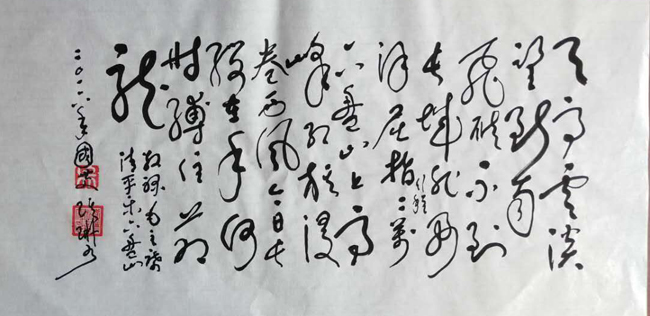 天高雲淡
望断南
飛雁不到
长城非好
汉屈指行程二萬
六盘山上高
峰红旗漫
卷西風今日长
缨在手何
时缚住苍
龙
敬录毛主席
清平乐六盘山
二〇一八年國